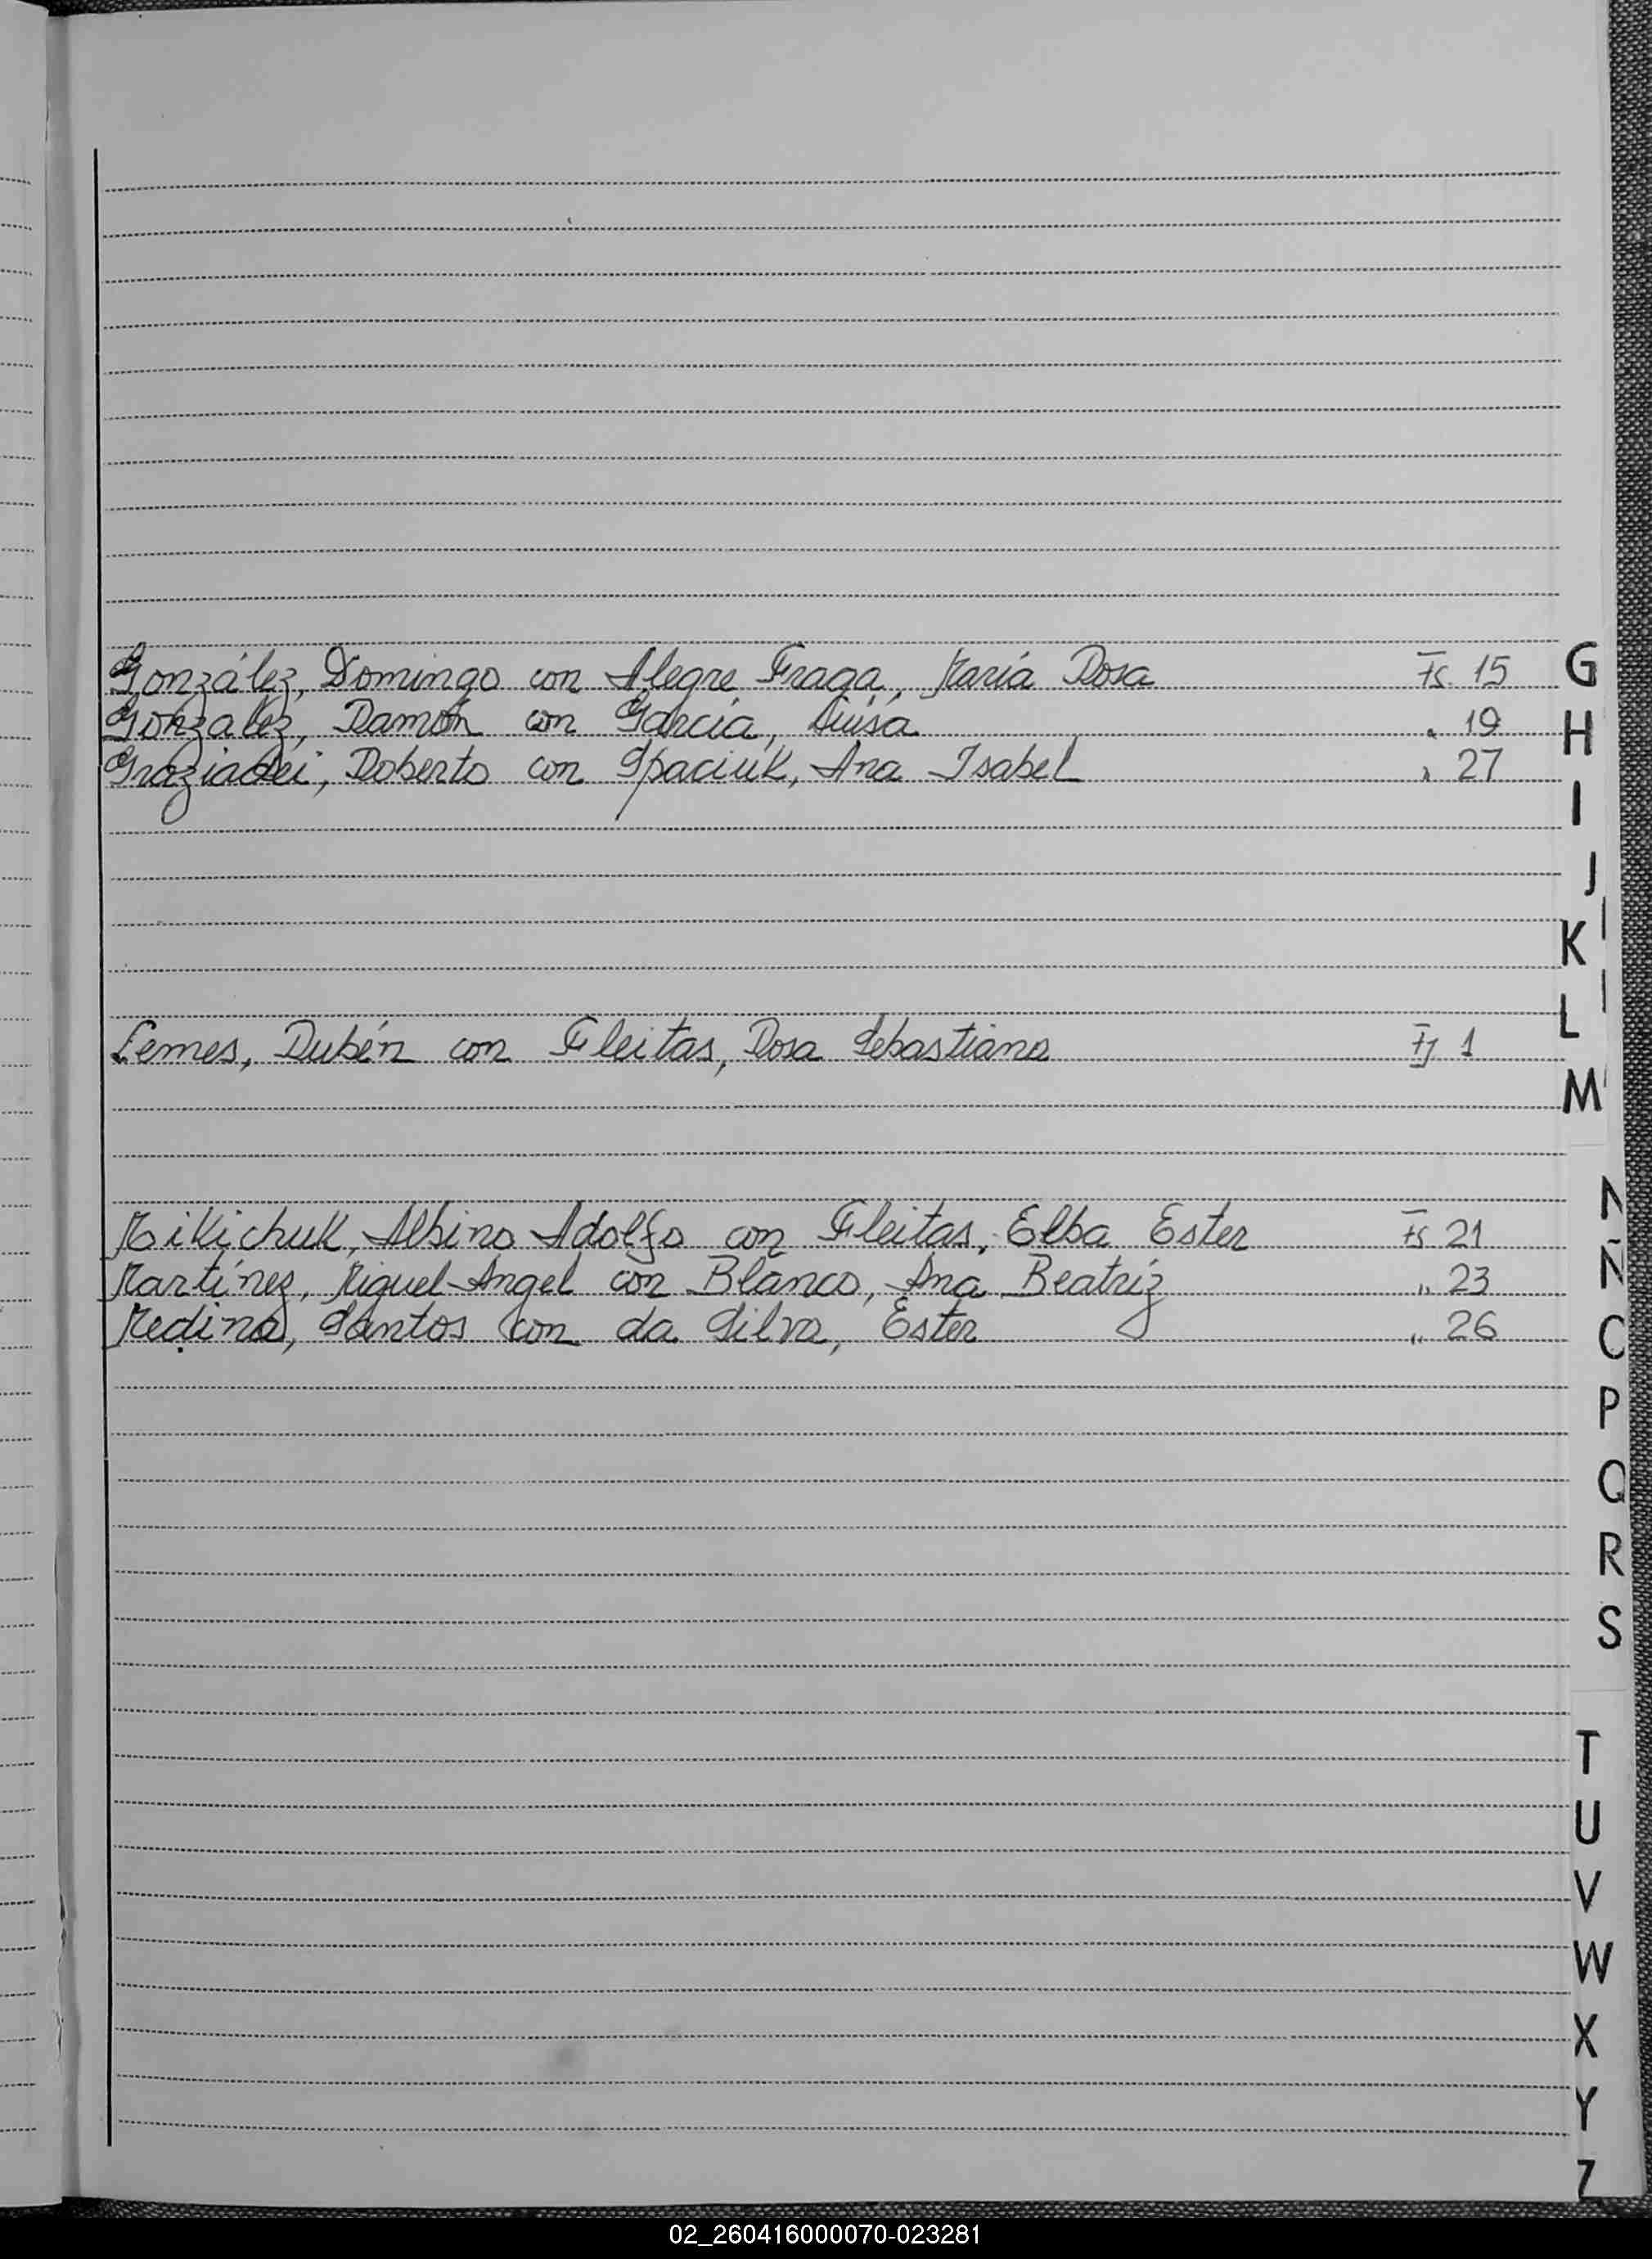 González, Domingo con Alegre Fraga, María Rosa Fs. 15
González, Ramón con García, Luisa " 19
Graziadei, Roberto con Spaciuk, Ana Isabel " 27
Lemes, Rubén con Fleitas, Rosa Sebastiana Fs 1
Mikichuk, Albino Adolfo con Fleitas, Elba Ester Fs 21
Martínez, Miguel Angel con Blanco, Ana Beatriz " 23
Medina, Santos con da Silva, Ester " 26
G
H
I
J
K
L
M
N
Ñ
O
P
Q
R
S
T
U
V
W
X
Y
Z
02_260416000070-023281